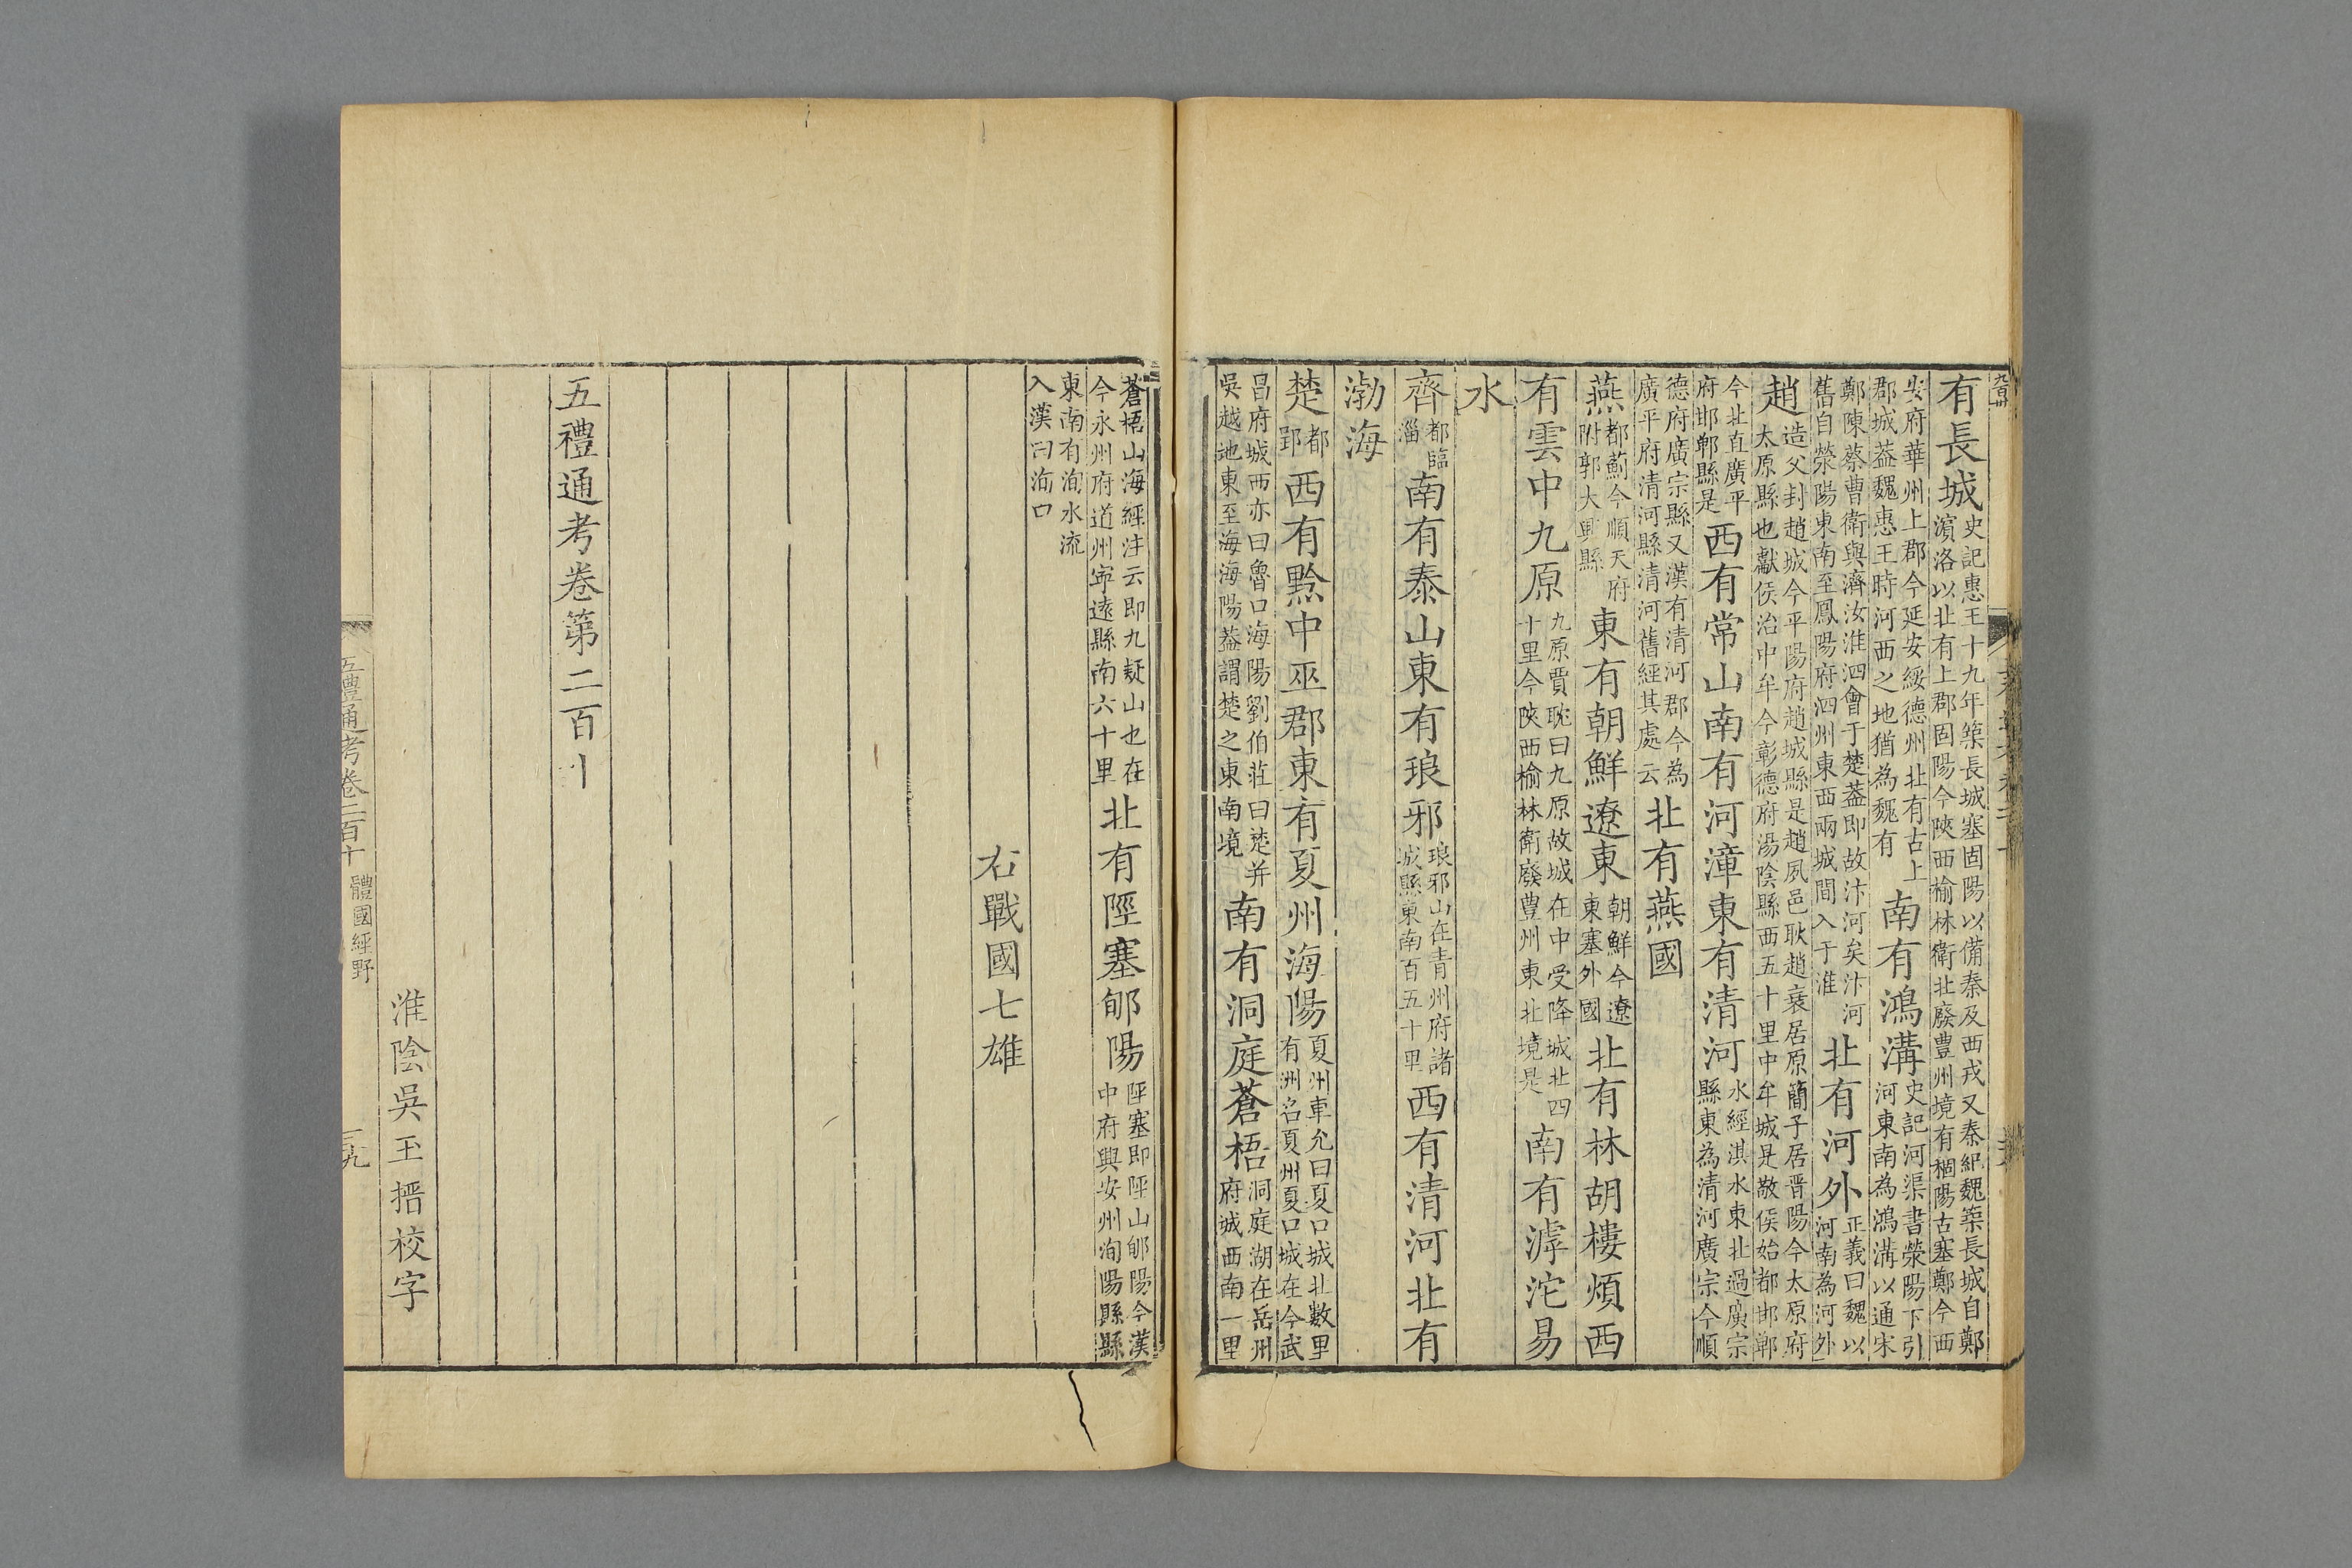 有長城史記惠王十九年築長城塞固陽以備秦及西戎又秦紀魏築長城自鄭濵洛以北有上郡固陽今陝西榆林衛北廢豊州境有稒陽古塞鄭今西
安府華州上郡今延安綏德州北有古上郡城葢魏惠王時河西之地猶為魏有南有鴻溝史記河渠書滎陽下引河東南為鴻溝以通宋
鄭陳蔡曹衛與濟汝淮泗會于楚葢即故汴河矣汴河舊自滎陽東南至鳳陽府泗州東西兩城間入于淮北有河外正義曰魏以河南為河外
趙造父封趙城今平陽府趙城縣是趙夙邑耿趙衰居原簡子居晋陽今太原府太原縣也獻侯治中牟今彰德府湯陰縣西五十里中牟城是敬侯始都邯鄲
今北直廣平府邯鄲縣是西有常山南有河漳東有清河水經淇水東北過廣宗縣東為清河廣宗今順
德府廣宗縣又漢有清河郡今為廣平府清河縣清河舊經其處云北有燕國
燕都薊今順天府附郭大興縣東有朝鮮遼東朝鮮今遼東塞外國北有林胡樓煩西
有雲中九原九原賈耽曰九原故城在中受降城北四十里今陝西榆林衛廢豊州東北境是南有滹沱易
水
齊都臨淄南有泰山東有琅邪琅邪山在青州府諸城縣東南百五十里西有清河北有
渤海
楚都郢西有黔中巫郡東有夏州海陽夏州車允曰夏口城北數里有洲名夏州夏口城在今武
昌府城西亦曰魯口海陽劉伯莊曰楚并吳越地東至海海陽葢謂楚之東南境南有洞庭蒼梧洞庭湖在岳州府城西南一里
蒼梧山海經注云即九疑山也在今永州府道州寕遠縣南六十里北有陘塞郇陽陘塞即陘山郇陽今漢中府興安州洵陽縣縣
東南有洵水流入漢曰洵口
右戰國七雄
五禮通考卷第二百
淮陰吳玉搢校字
五禮通考卷二百十 體國經野